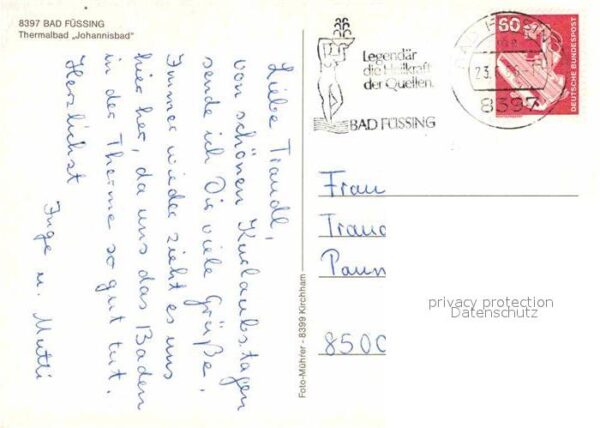 8397 BAD FÜSSING
Thermalbad „Johannisbad"
Liebe Traudl,
von schönen Kurlaubstagen
sende ich Dir viele Grüße.
Immer wieder zieht es uns
hier her, da uns das Baden
in der Therme so gut tut.
Herzlichst
Inge u. Mutti
Foto-Mührer - 8399 Kirchham
Legendär
die Heilkraft
der Quellen.
BAD FÜSSING
BAD FÜSSIN
23.
8397
60
DEUTSCHE BUNDESPOST
Frau
Trau
Paun
8500
privacy protection
Datenschutz